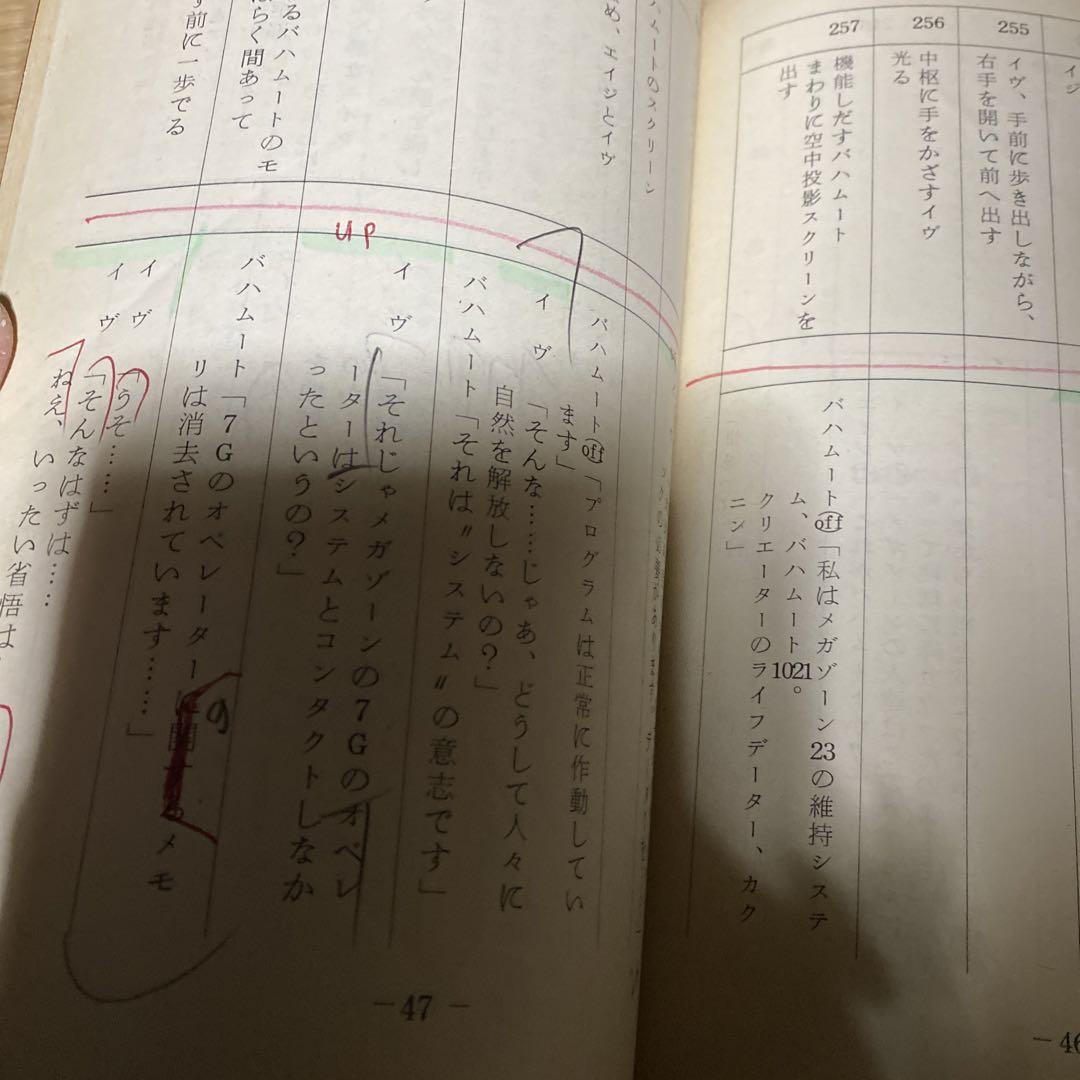 255
イヴ、手前に歩き出しながら、
右手を開いて前へ出す
256
中枢に手をかざすイヴ
光る
257
機能しだすバハムート
まわりに空中投影スクリーンを
出す
バハムートoff「私はメガゾーン23の維持システ
ム、バハムート1021。
クリエーターのライフデーター、カク
ニン」
－46
ムートのスクリーン
め、エイジとイヴ
るバハムートのモ
らく間あって
前に一歩でる
up
バハムートoff「プログラムは正常に作動してい
ます」
イヴ「そんな……じゃあ、どうして人々に
自然を解放しないの？」
バハムート「それは〃システム〃の意志です」
イヴ「それじゃメガゾーンの7Gのオペレ
ーターはシステムとコンタクトしなか
ったというの？」
バハムート「7Gのオペレーターに関するメモ
の
リは消去されています……」
イヴ「うそ……」
イヴ「そんなはずは……
ねえ、いったい省悟は
－47－